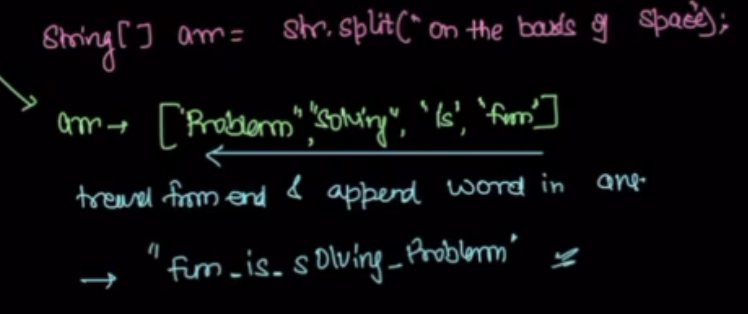 String[] arr = str.split(" on the basis of space);
arr → ["Problem", "solving", 'is', 'fun']
travel from end & append word in ans.
→ "fun_is_solving_Problem"